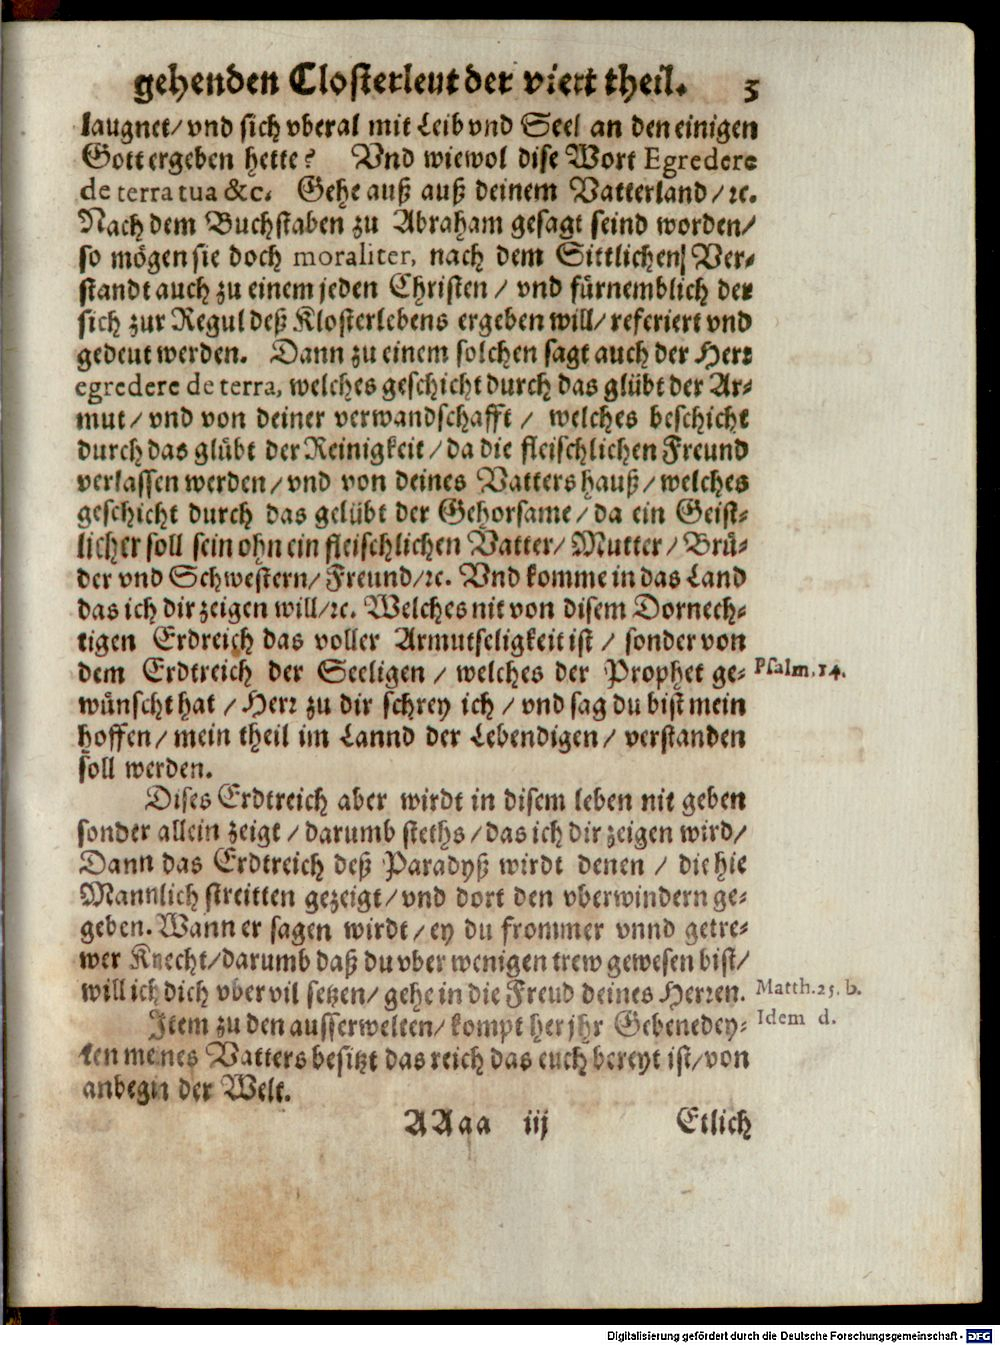 gehenden Closterleut der viert theil. 5
laugnet/ vnd sich vberal mit Leib vnd Seel an den einigen
Gott ergeben hette? Vnd wiewol dise Wort Egredere
de terra tua &c. Gehe auß auß deinem Vatterland/ ꝛc.
Nach dem Buchstaben zu Abraham gesagt seind worden/
so mögen sie doch moraliter, nach dem Sittlichen Ver⸗
standt auch zu einem jeden Christen / vnd fürnemblich der
sich zur Regul deß Klosterlebens ergeben will/ referiert vnd
gedeut werden. Dann zu einem solchen sagt auch der Herꝛ
egredere de terra, welches geschicht durch das glübt der Ar⸗
mut/ vnd von deiner verwandschafft / welches beschicht
durch das glübt der Reinigkeit/ da die fleischlichen Freund
verlassen werden/ vnd von deines Vatters hauß/ welches
geschicht durch das gelübt der Gehorsame/ da ein Geist⸗
licher soll sein ohn ein fleischlichen Vatter/ Mutter/ Brü⸗
der vnd Schwestern/ Freund/ꝛc. Vnd komme in das Land
das ich dir zeigen will/ꝛc. Welches nit von disem Dornech⸗
tigen Erdreich das voller Armutseligkeit ist / sonder von
dem Erdtreich der Seeligen / welches der Prophet ge⸗ Psalm. 14.
wünscht hat / Herꝛ zu dir schrey ich / vnd sag du bist mein
hoffen/ mein theil im Lannd der Lebendigen/ verstanden
soll werden.
Dises Erdtreich aber wirdt in disem leben nit geben
sonder allein zeigt / darumb steths / das ich dir zeigen wird/
Dann das Erdtreich deß Paradyß wirdt denen / die hie
Mannlich streitten gezeigt/ vnd dort den vberwindern ge⸗
geben. Wann er sagen wirdt/ ey du frommer vnnd getre⸗
wer Knecht/darumb daß du vber wenigen trew gewesen bist/
will ich dich vber vil setzen/ gehe in die Freud deines Herꝛen. Matth. 25. b.
Item zu den ausserwelten/ kompt her jhr Gebenedey⸗ Idem d.
ten meines Vatters besitzt das reich das euch bereyt ist/ von
anbegin der Welt.
AAaa iij Etlich
Digitalisierung gefördert durch die Deutsche Forschungsgemeinschaft - DFG